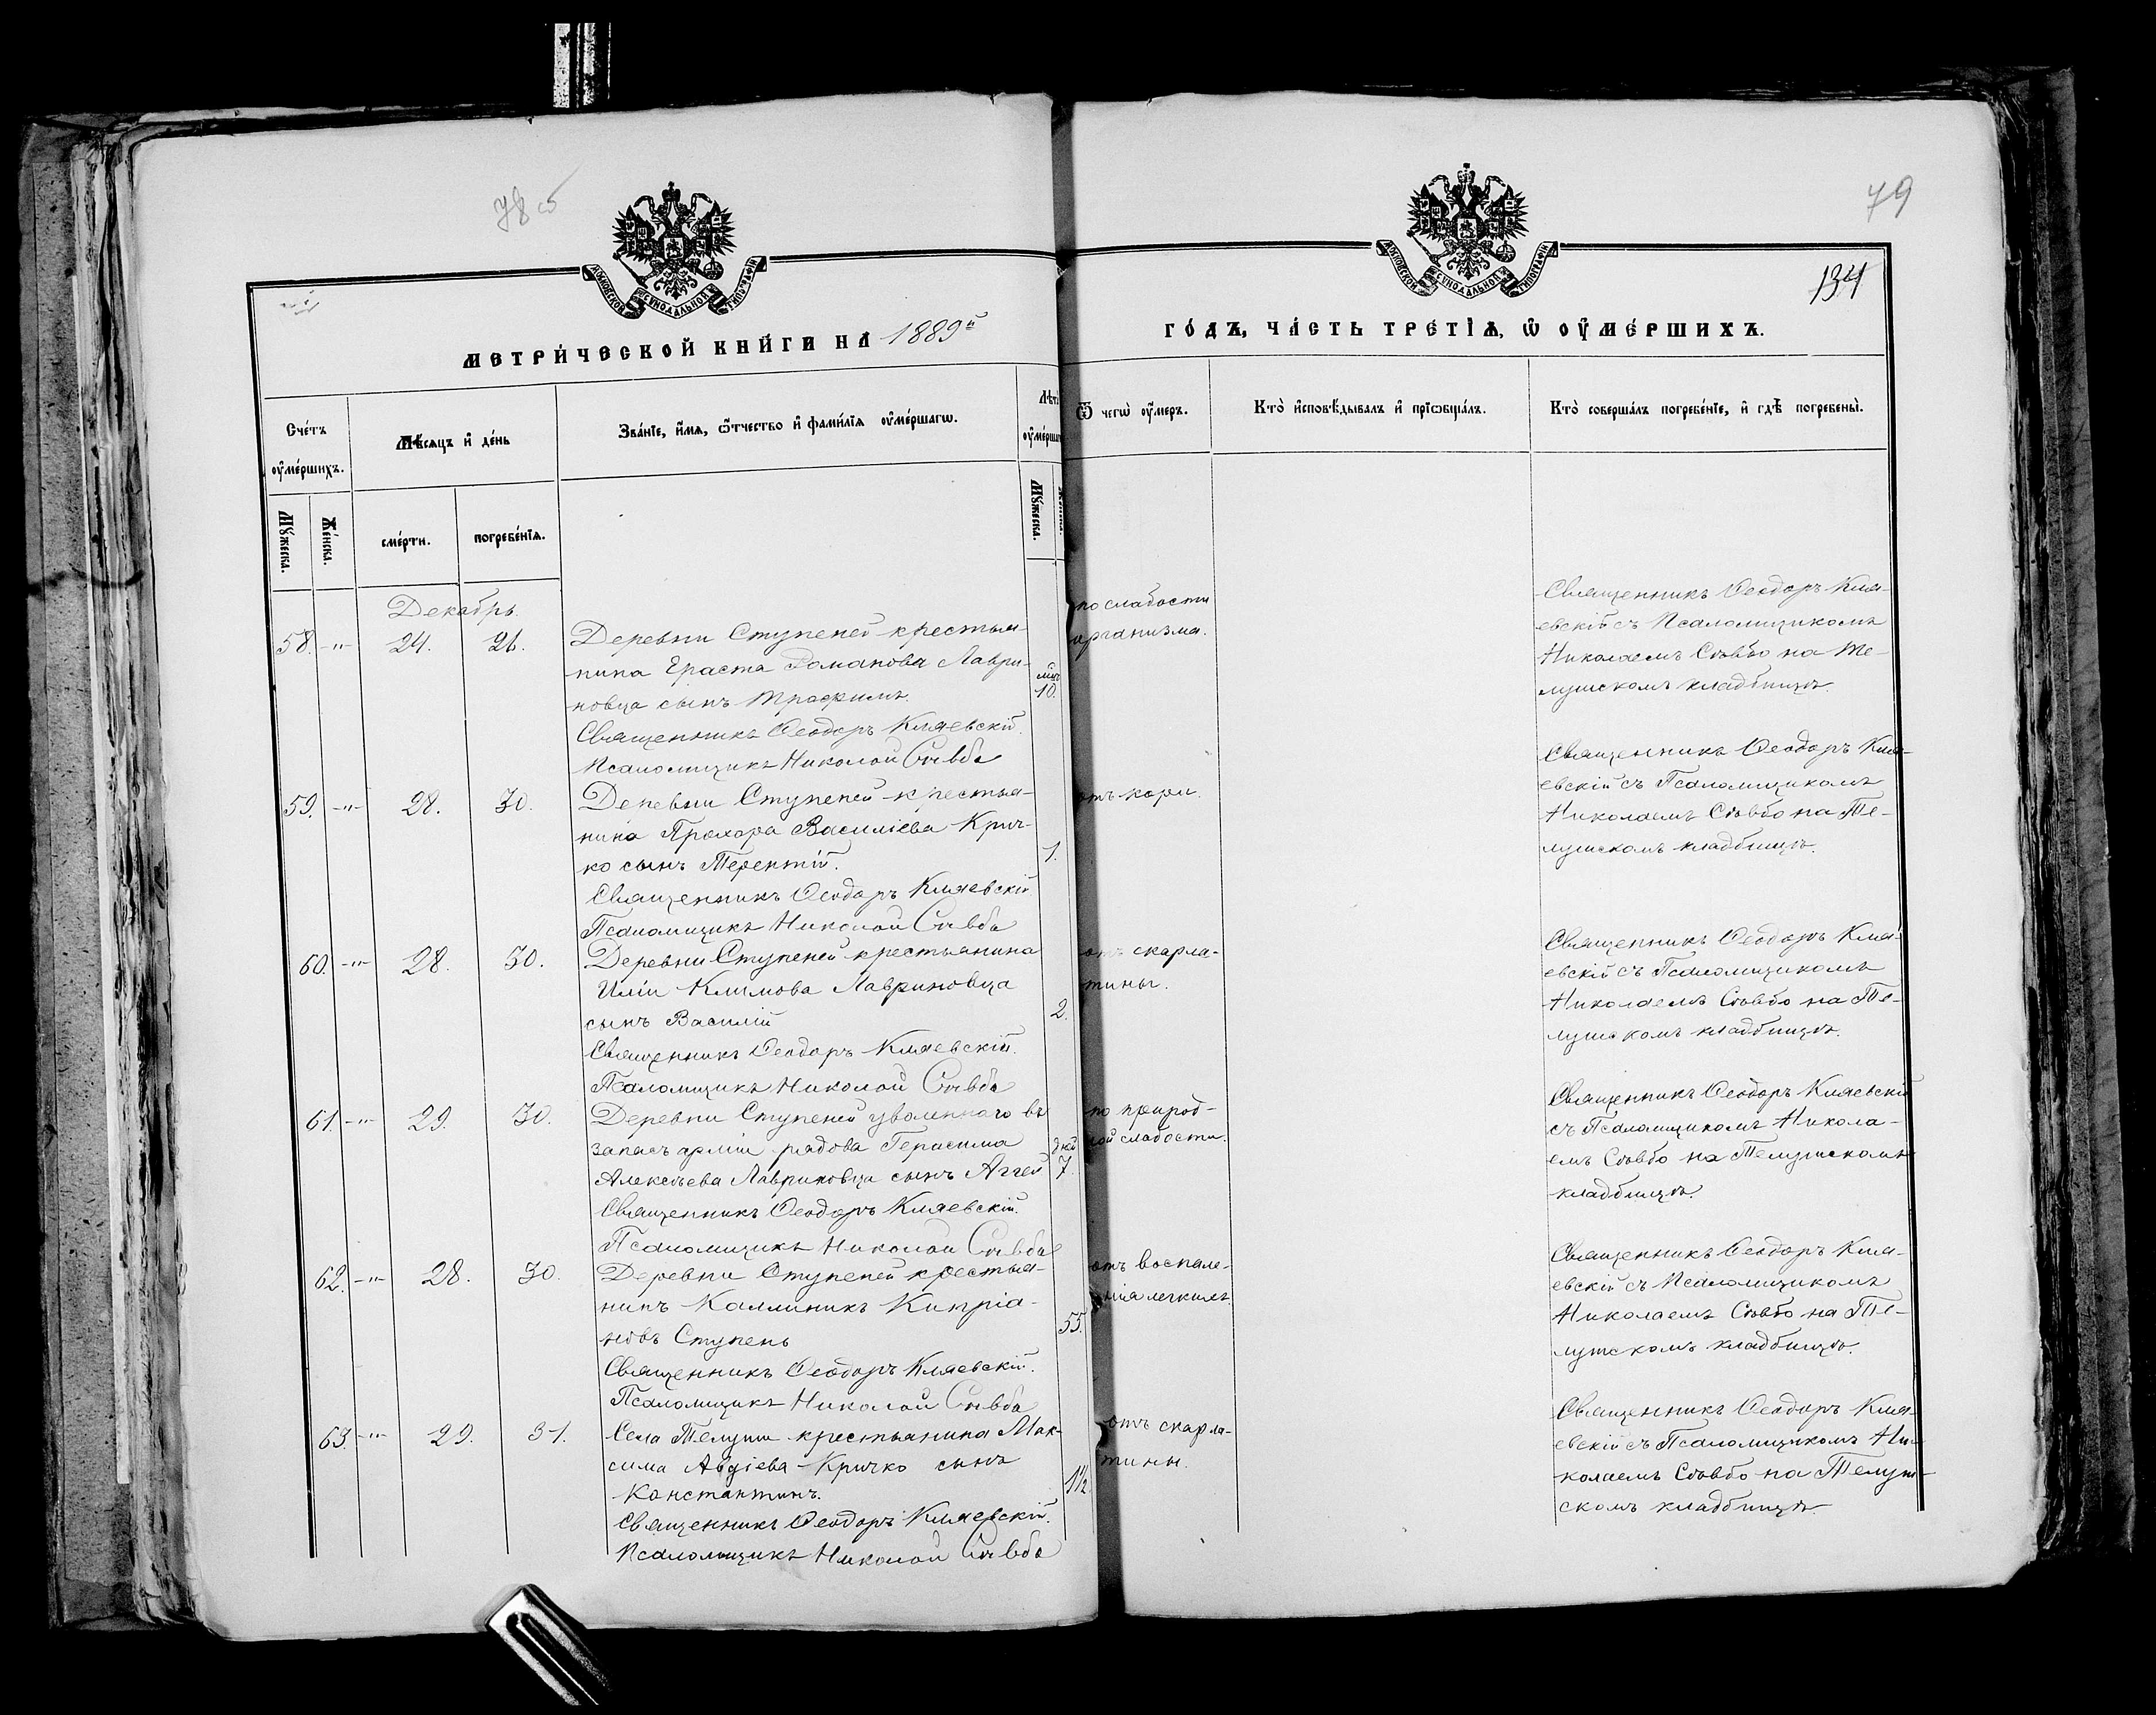 78 об
79
134
МОСКОВСКОЙ СѴНОДАЛЬНОЙ ТИПОГРАФІИ
МОСКОВСКОЙ СѴНОДАЛЬНОЙ ТИПОГРАФІИ
МЕТРИ́ЧЕСКОЙ КНИ́ГИ НА 1889й
ГО́ДЪ, ЧА́СТЬ ТРЕ́ТІѦ, Ѿ ОУ҆МЕ́РШИХЪ.
Сче́тъ оу҆ме́ршихъ.
Мѣ́сяцъ и҆ де́нь
Зва́ніе, и҆́мѧ, ѻ҆́тчество и҆ фами́лїѧ оу҆ме́ршагѡ.
Лѣт
оу҆ме́рша
Ѿ чегѡ̀ оу҆́меръ.
Кто̀ и҆сповѣ́дывалъ и҆ прїѡбща́лъ.
Кто̀ соверша́лъ погребе́нїе, и҆ гдѣ̀ погребены̀.
Мꙋ́жеска.
Же́нска.
сме́рти.
погребе́нїѧ.
Мꙋ́жеска.
Декабрь
58. -"- 24. 26. Деревни Ступеней крестья-
нина Ераста Романова Лаври-
новца сынъ Трофимъ.
Священникъ Ѳеодоръ Кляевскій.
Псаломщикъ Николай Съвба
мѣс
10.
по слабости
организма.
Священникъ Ѳеодоръ Кля-
евскій съ Псаломщикомъ
Николаемъ Съвбо на Те-
лушскомъ кладбищѣ.
59. -"- 28. 30. Деревни Ступеней крестья-
нина Прохора Василіева Крич-
ко сынъ Терентій.
Священникъ Ѳеодоръ Кляевскій
Псаломщикъ Николай Съвба
1.
отъ кори.
Священникъ Ѳеодоръ Кля-
евскій съ Псаломщикомъ
Николаемъ Съвбо на Те-
лушскомъ кладбищѣ.
60. -"- 28. 30. Деревни Ступеней крестьянина
Иліи Климова Лавриновца
сынъ Василій
Священникъ Ѳеодоръ Кляевскій.
Псаломщикъ Николай Съвба
2.
отъ скарла-
тины.
Священникъ Ѳеодоръ Кля-
евскій съ Псаломщикомъ
Николаемъ Съвбо на Те-
лушскомъ кладбищѣ.
61. -"- 29. 30. Деревни Ступеней уволеннаго въ
запасъ арміи рядова Герасима
Алексѣева Лавриновца сынъ Аггей
Священникъ Ѳеодоръ Кляевскій.
Псаломщикъ Николай Съвба
дней
7.
по природ-
ной слабости.
Священникъ Ѳеодоръ Кляевскій
съ Псаломщикомъ Никола-
емъ Съвбо на Телушскомъ
кладбищѣ.
62. -"- 28. 30. Деревни Ступеней крестья-
нинъ Каллиникъ Кипріа-
новъ Ступень
Священникъ Ѳеодоръ Кляевскій.
Псаломщикъ Николай Съвба
55.
отъ воспале-
нія легкихъ.
Священникъ Ѳеодоръ Кля-
евскій съ Псаломщикомъ
Николаемъ Съвбо на Те-
лушскомъ кладбищѣ.
63. -"- 29. 31. Села Телуши крестьянина Мак-
сима Авдіева Кричко сынъ
Константинъ.
Священникъ Ѳеодоръ Кляевскій.
Псаломщикъ Николай Съвба
1½.
отъ скарла-
тины.
Священникъ Ѳеодоръ Кля-
евскій съ Псаломщикомъ Ни-
колаемъ Съвбо на Телуш-
скомъ кладбищѣ.